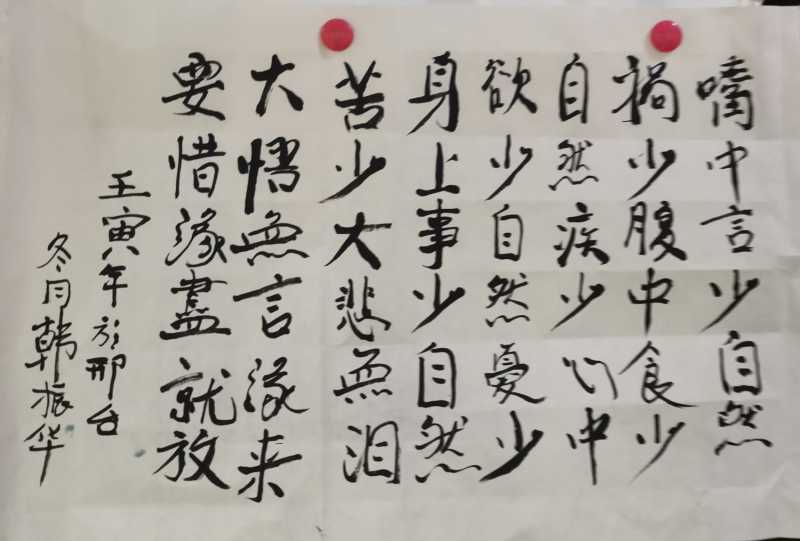 嘴中言少自然
祸少腹中食少
自然疾少心中
欲少自然憂少
身上事少自然
苦少大悲無泪
大悟無言缘来
要惜缘盡就放
壬寅年於邢台
冬月韩振华